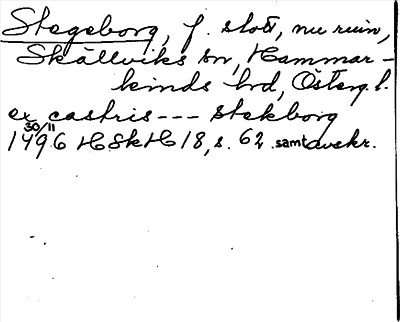 Stegeborg, f. slott, nu ruin,
Skällviks sn, Hammar-
kinds hrd, Österg. l.
ex castris --- stekborg
30/11
1496 HSkH 18, s. 62 samt. avskr.